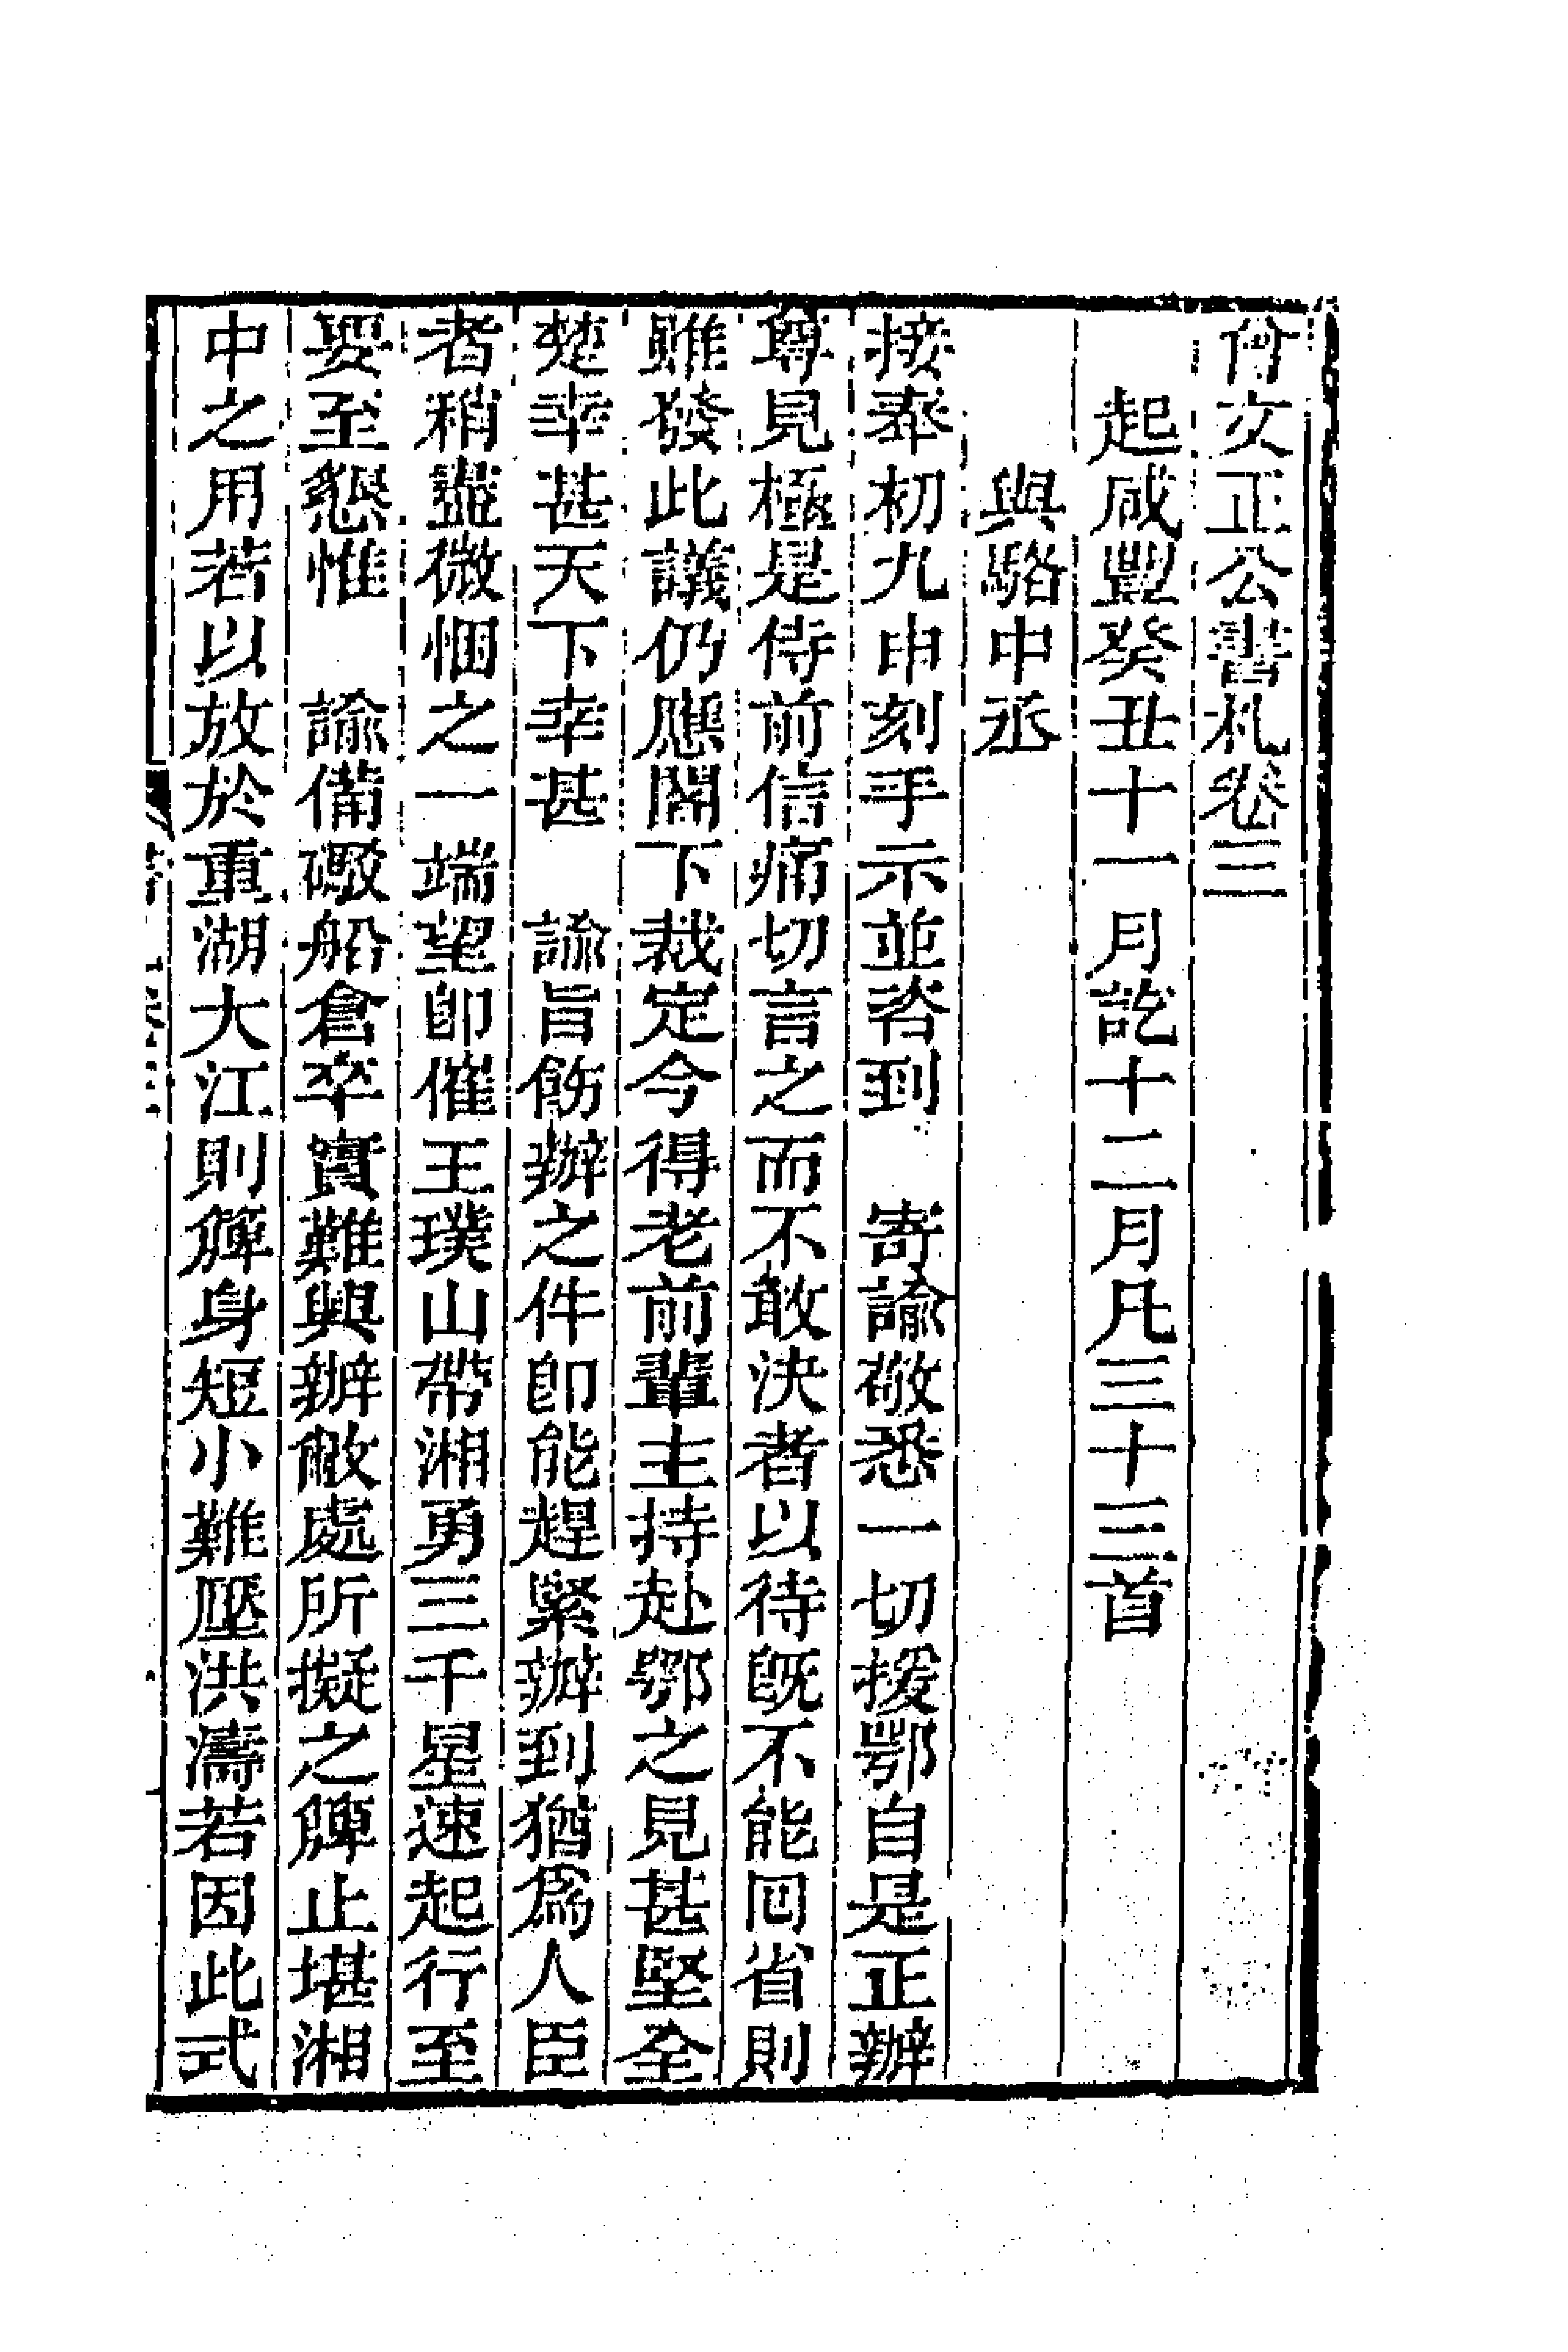 曾文正公書札卷三
起咸豐癸丑十一月訖十二月凡三十三首
與駱中丞
接奉初九申刻手示並咨到　寄諭敬悉一切援鄂自是正辦
尊見極是侍前信痛切言之而不敢決者以待旣不能囘省則
雖發此議仍應閣下裁定今得老前輩主持赴鄂之見甚堅全
楚幸甚天下幸甚　諭旨飭辦之件卽能趕緊辦到猶爲人臣
者稍盡微悃之一端望卽催王璞山帶湘勇三千星速起行至
要至懇惟　諭備礮船倉卒實難興辦敝處所擬之簰止堪湘
中之用若以放於重湖大江則簰身短小難壓洪濤若因此式